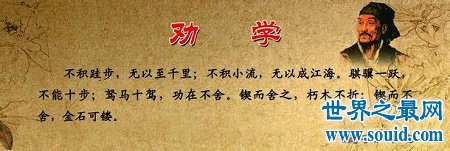 劝 学
不积跬步，无以至千里；不积小流，无以成江海。骐骥一跃，
不能十步；驽马十驾，功在不舍。锲而舍之，朽木不折；锲而不
舍，金石可镂。
世界之最网
www.souid.com